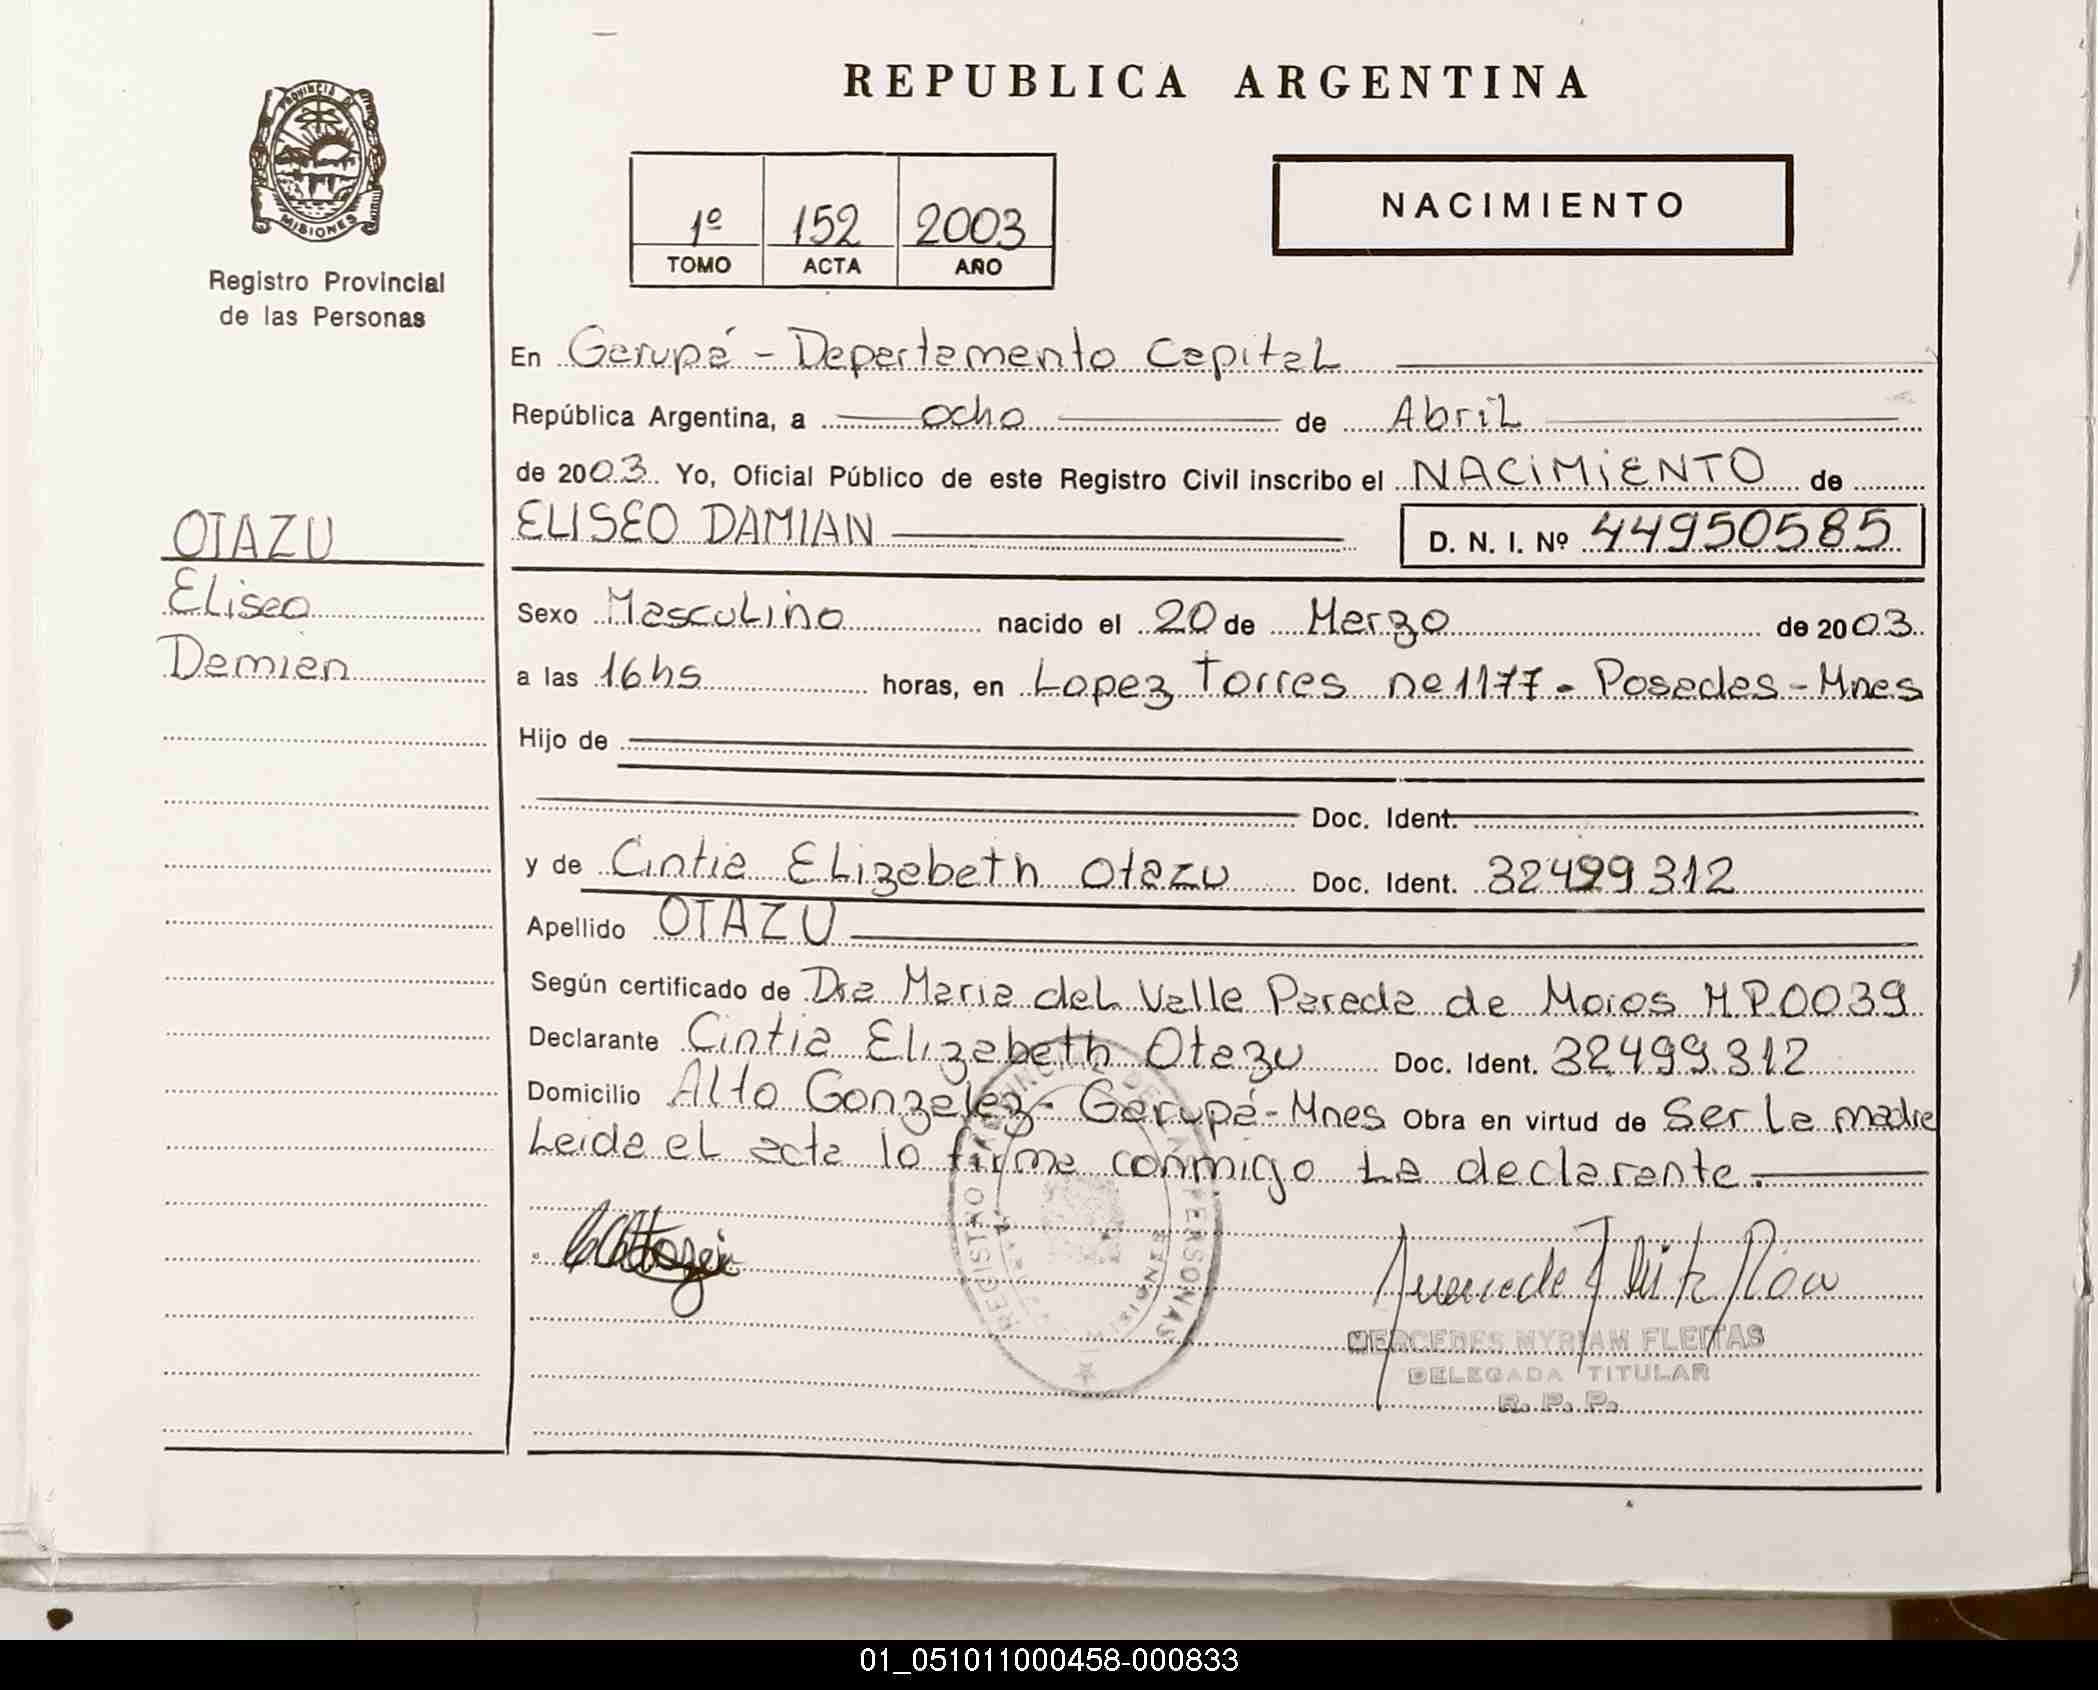 REPUBLICA ARGENTINA
PROVINCIA DE
MISIONES
Registro Provincial
de las Personas
1º 152 2003
TOMO ACTA AÑO
NACIMIENTO
En Garupá - Departamento Capital
República Argentina, a ocho de Abril
de 2003 Yo, Oficial Público de este Registro Civil inscribo el NACIMIENTO de
OTAZU
Eliseo
Damian
ELISEO DAMIAN D. N. I. Nº 44950585
Sexo Masculino nacido el 20 de Marzo de 2003
a las 16hs horas, en Lopez Torres nº 1177 - Posadas - Mnes
Hijo de
Doc. Ident.
y de Cintia Elizabeth Otazu Doc. Ident. 32499312
Apellido OTAZU
Según certificado de Dra Maria del Valle Pareda de Moios M.P.0039
Declarante Cintia Elizabeth Otazu Doc. Ident. 32.499.312
Domicilio Alto Gonzalez - Garupá - Mnes Obra en virtud de Ser la madre
Leida el acta lo firma conmigo la declarante.
REGISTRO PROVINCIAL DE LAS PERSONAS
MISIONES
MERCEDES MYRIAM FLEITAS
DELEGADA TITULAR
R. P. P.
01_051011000458-000833